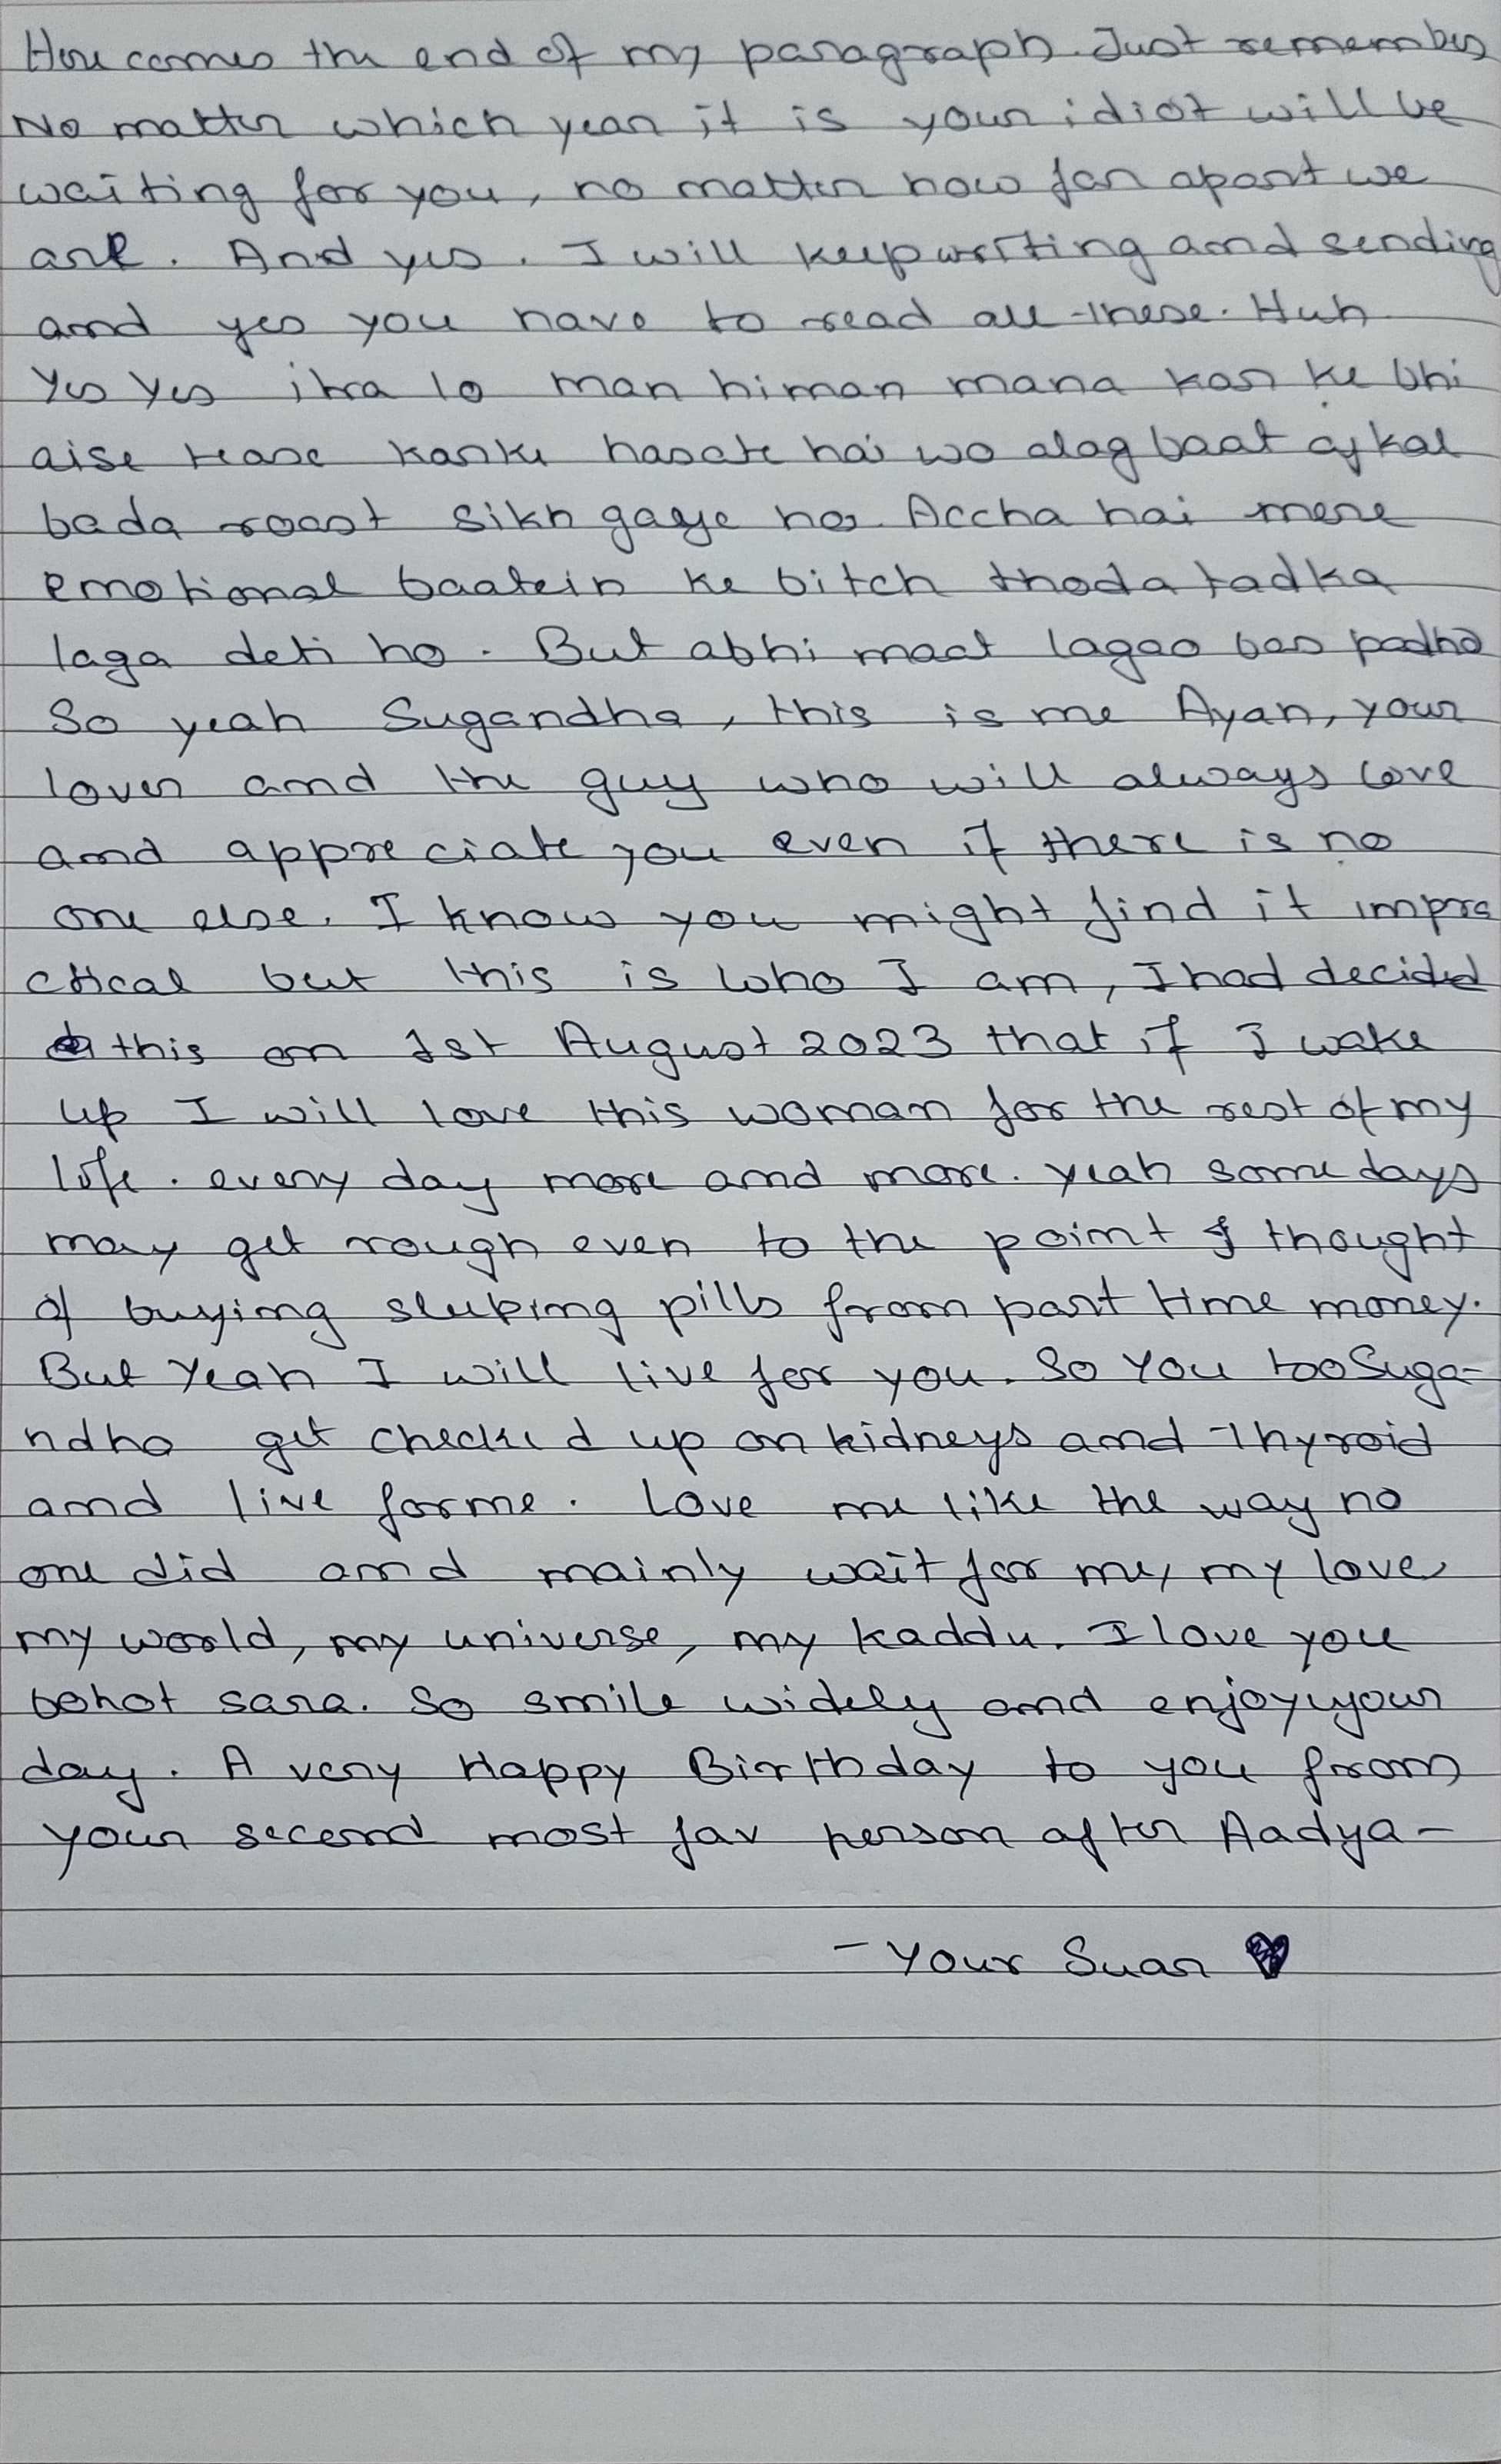 Here comes the end of my paragraph. Just remember
No matter which year it is your idiot will be
waiting for you, no matter how far apart we
are. And yes. I will keep writing and sending
and yes you have to read all these. Huh
Yes Yes itra lo man himan mana kar ke bhi
aise tease karke hasate hai wo alag baat ajkal
bada roast sikh gaye ho. Accha hai mere
emotional baatein ke bitch thoda tadka
laga deti ho. But abhi maat lagao bas padho
So yeah Sugandha, this is me Ayan, your
lover and the guy who will always love
and appreciate you even if there is no
one else. I know you might find it impra
ctical but this is who I am, I had decided
this on 1st August 2023 that if I wake
up I will love this woman for the rest of my
life. every day more and more. yeah some days
may get rough even to the point I thought
of buying sleeping pills from part time money.
But Yeah I will live for you. So You too Suga-
ndha get checked up on kidneys and Thyroid
and live for me. Love me like the way no
one did and mainly wait for me, my love
my world, my universe, my kaddu. I love you
bohot sara. So smile widely and enjoy your
day. A very Happy Birthday to you from
your second most fav person after Aadya-
- Your Suar